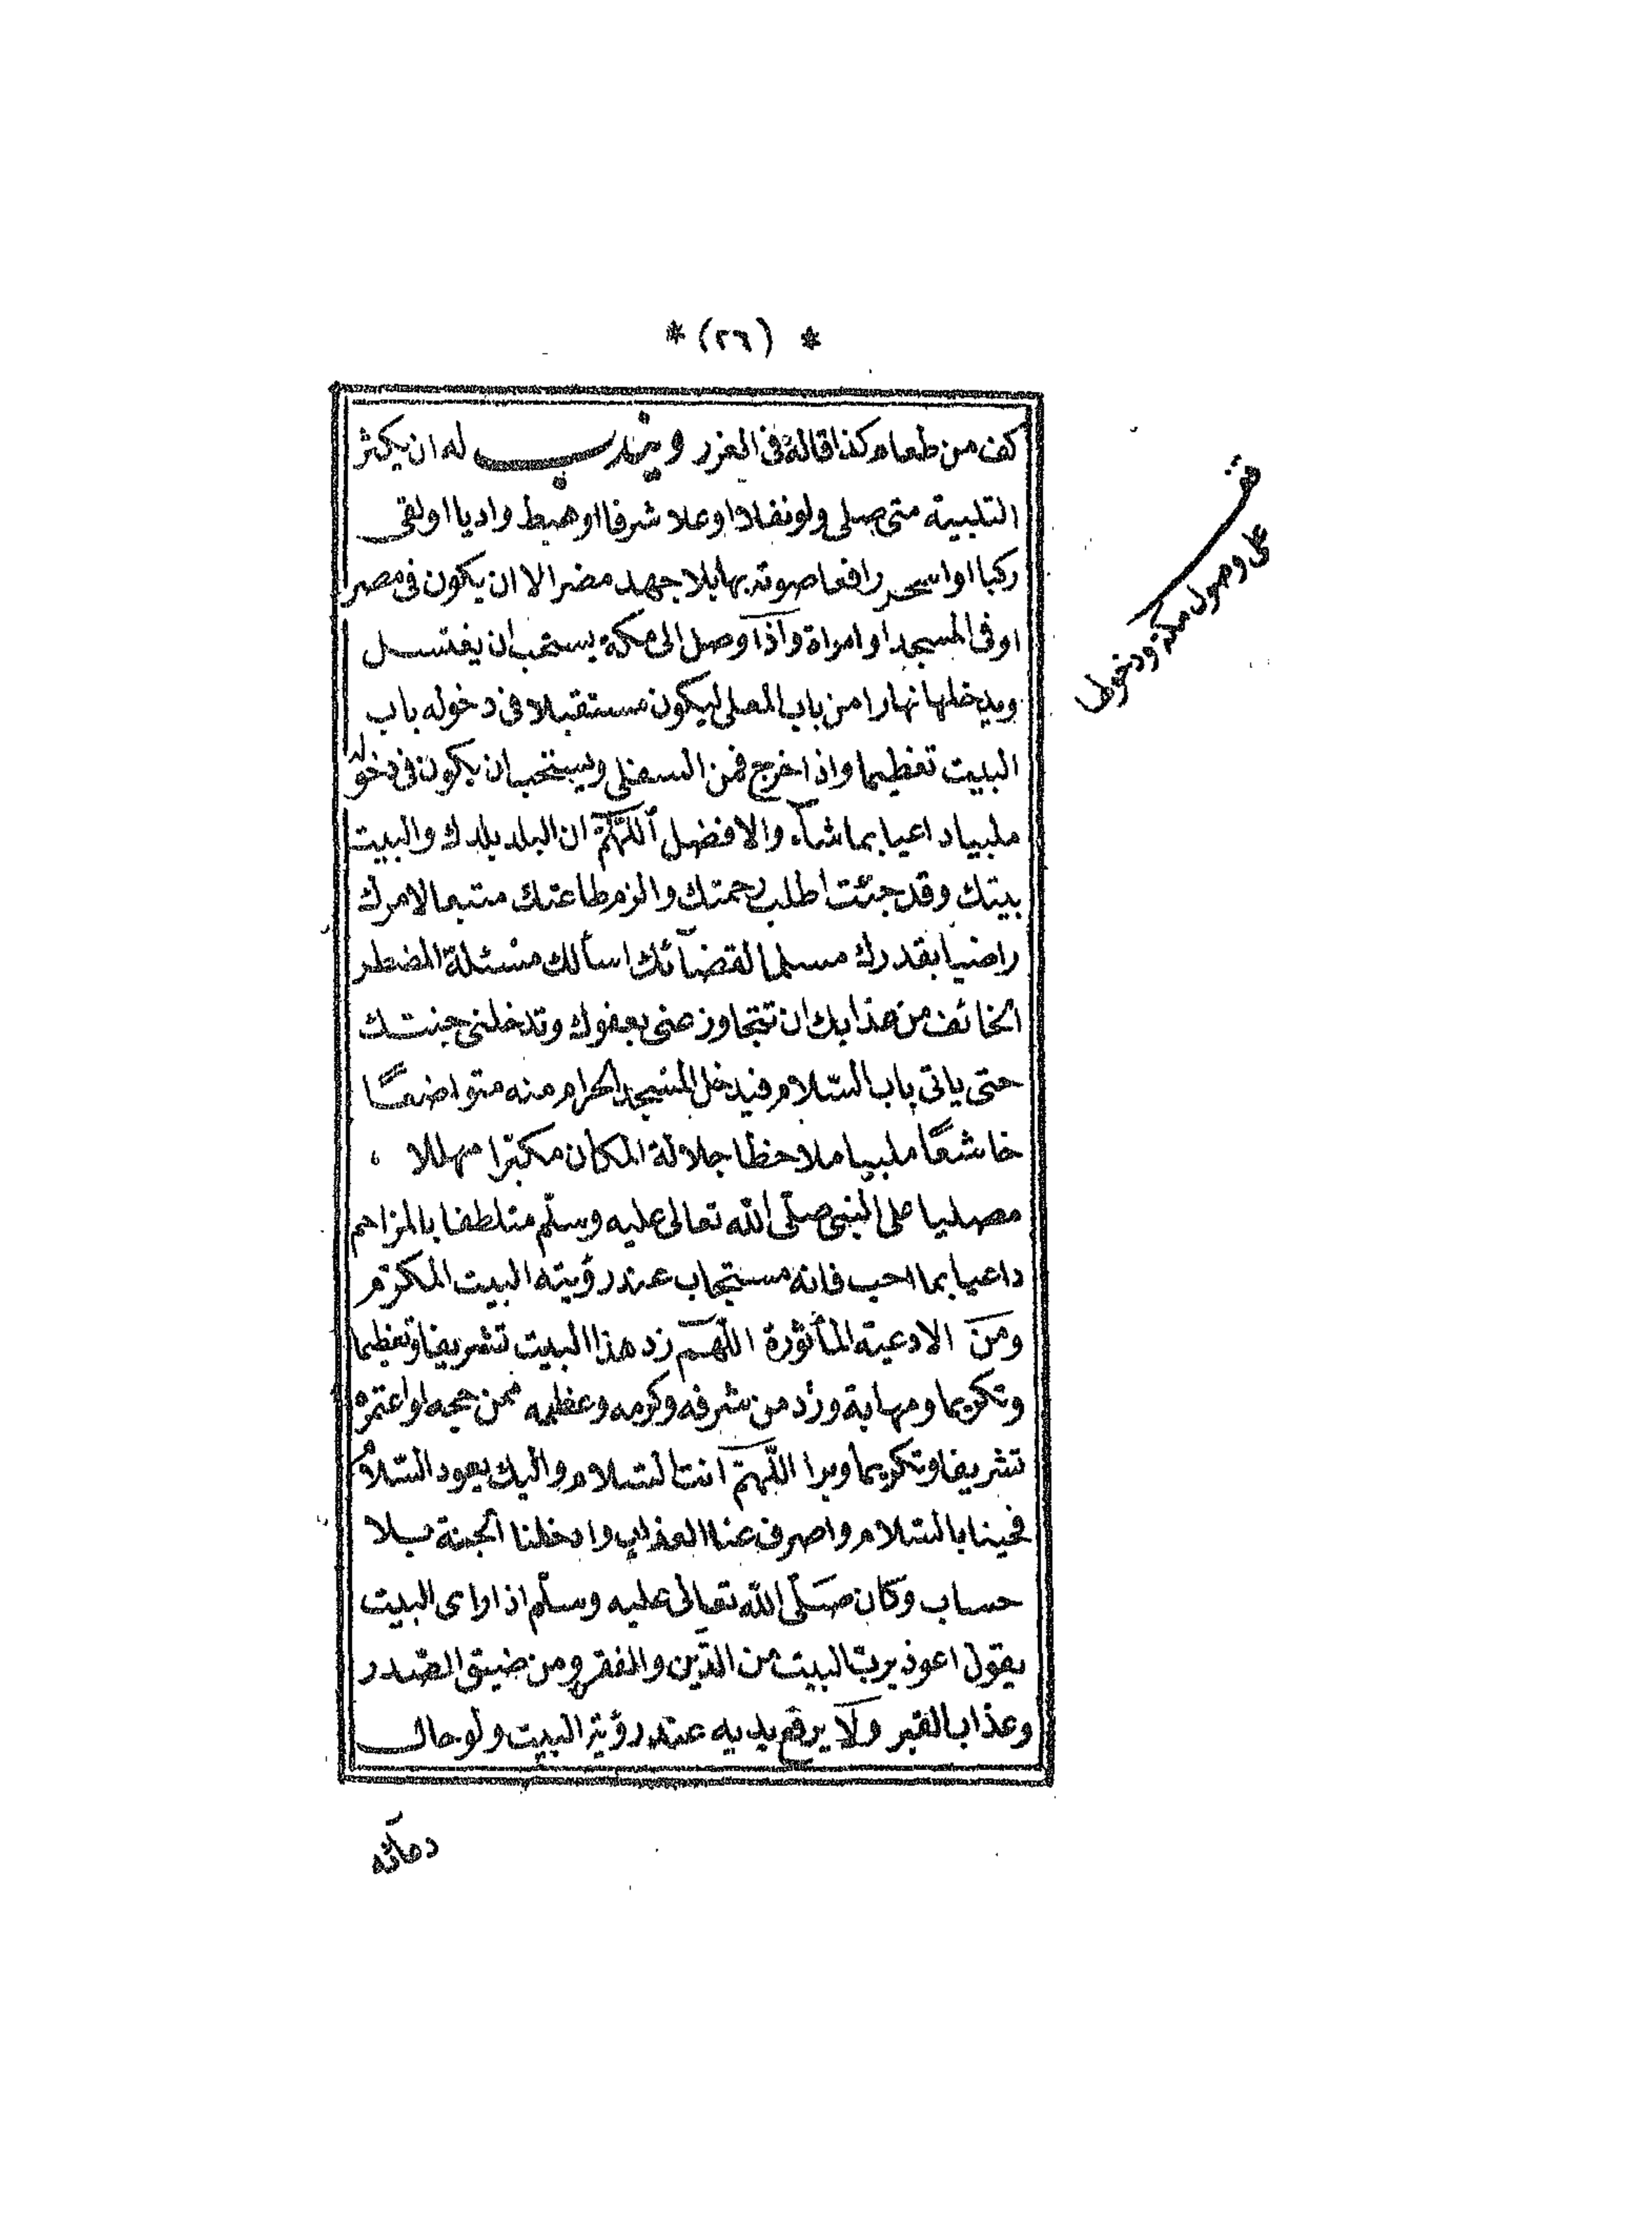 * (٢٦) *
كف من طعام كذا قاله فى الغرر ويندب له ان يكثر
التلبية متى صلى ولو نفلا او علا شرفا او هبط واديا او لقى
ركبا او اسحر رافعا صوته بها بلا جهد مضر الا ان يكون فى مصر
او فى المسجد او امراة واذا وصل الى مكة يستحب ان يغتسل
ويدخلها نهارا من باب المعلى ليكون مستقبلا فى دخوله باب
البيت تعظيما واذا خرج فمن السفلى ويستحب ان يكون فى دخوله
ملبيا داعيا بما شآء والافضل اللهم ان البلد بلدك والبيت
بيتك وقد جئت اطلب رحمتك والزم طاعتك متبعا لامرك
راضيا بقدرك مسلما لقضآئك اسألك مسئلة المضطر
الخائف من عذابك ان تتجاوز عنى بعفوك وتدخلنى جنتك
حتى ياتى باب السّلام فيدخل المسجد الحرام منه متواضعًا
خاشعًا ملبيا ملاحظا جلالة المكان مكبّرا مهللا ،
مصليا على النبى صلّى الله تعالى عليه وسلّم متلطفا بالمزاحم
داعيا بما احب فانه مستجاب عند رؤيته البيت المكرّم
ومن الادعية المأثورة اللّهمّ زد هذا البيت تشريفا وتعظيما
وتكريما ومهابة وزد من شرفه وكرمه وعظمه ممن حجه او اعتمره
تشريفا وتكريما وبرا اللّهمّ انت السّلام واليك يعود السّلام
فحينا بالسّلام واصرف عنا العذاب وادخلنا الجنة بلا
حساب وكان صَلّى الله تعالى عليه وسلّم اذا راى البيت
يقول اعوذ بربّ البيت من الدّين والفقر ومن ضيق الصّدر
وعذاب القبر ولا يرفع يديه عند رؤية البيت ولو حال
دعآئه
على وصول مكة ودخول